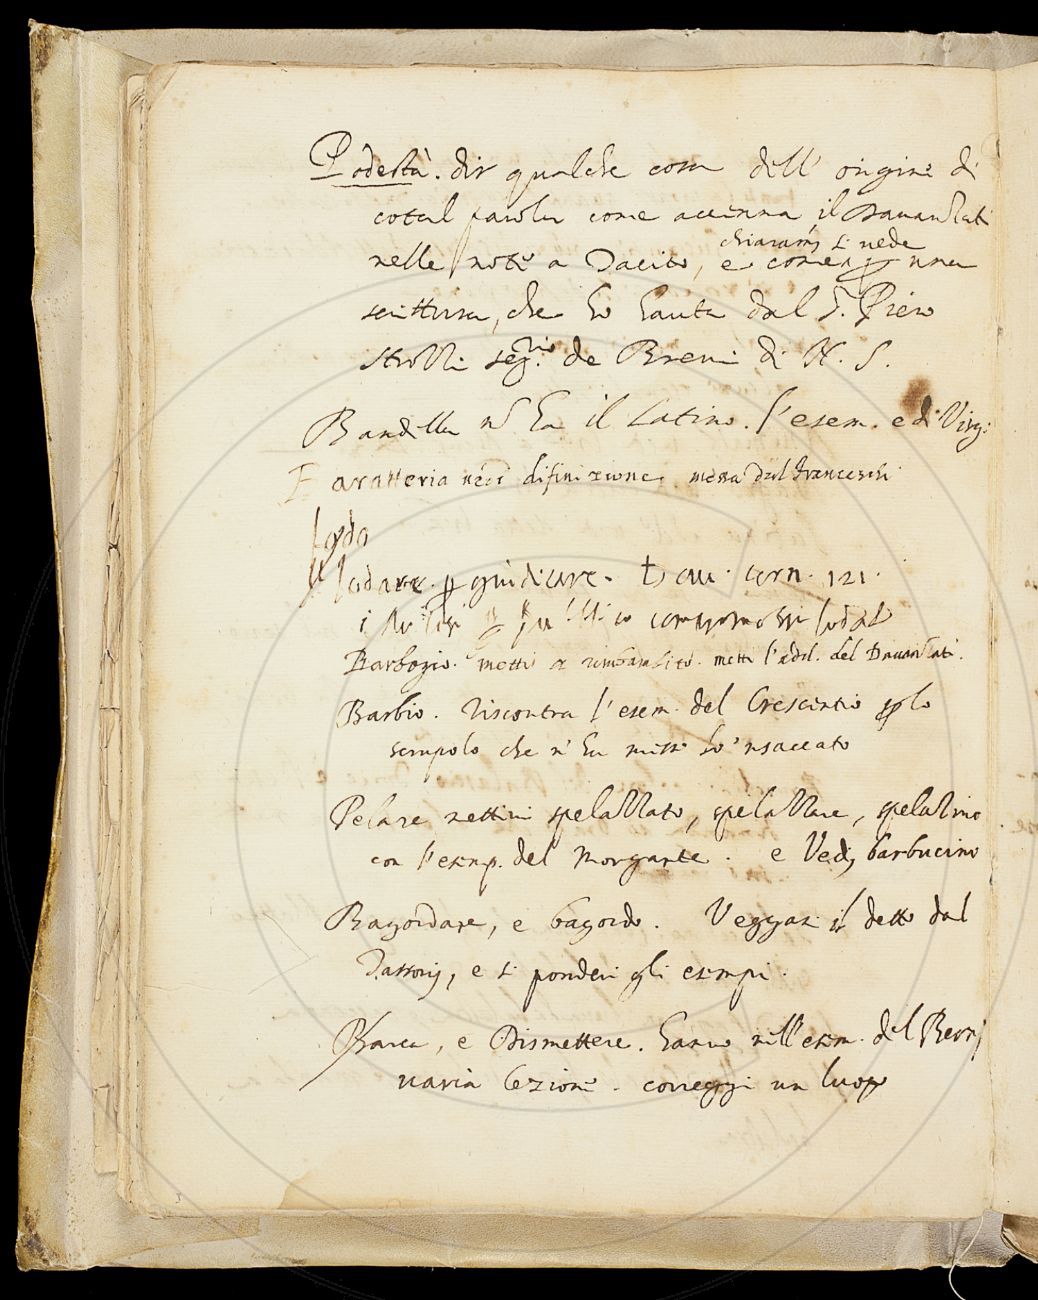 Podestà. dir qualche cosa dell' origine di
cotal parola come accenna il Davanzati
nelle note a Tacito, e come chiaram.te si vede p una
scrittura, che ho hauta dal S. Piero
strozzi seg.rio de Brevi di N. S.
Bandella ñ ha il Latino. l'esem. e di Virg:
Baratteria difinizione. messa dal franceschi
Lodo
lodare. p giudicare. Dav. 121.
lodat
Barbogio. metti a rimbambito. metti l'add. del Davanzati.
Barbio. riscontra l'esem. del Crescentio p lo
scrupolo che n' ha messo lo 'nsaccato
Pelare mettivi spelazzato, spelazzare, spelazzino
con l'esemp. del Morgante. e Vedi barbucino
Bagordare, e bagordo. Veggasi il detto dal
Tassoni, e si ponderi gli esempi.
Barca, e Dismettere. hanno nell'esem. del Berni
varia lezione. correggi un luogo